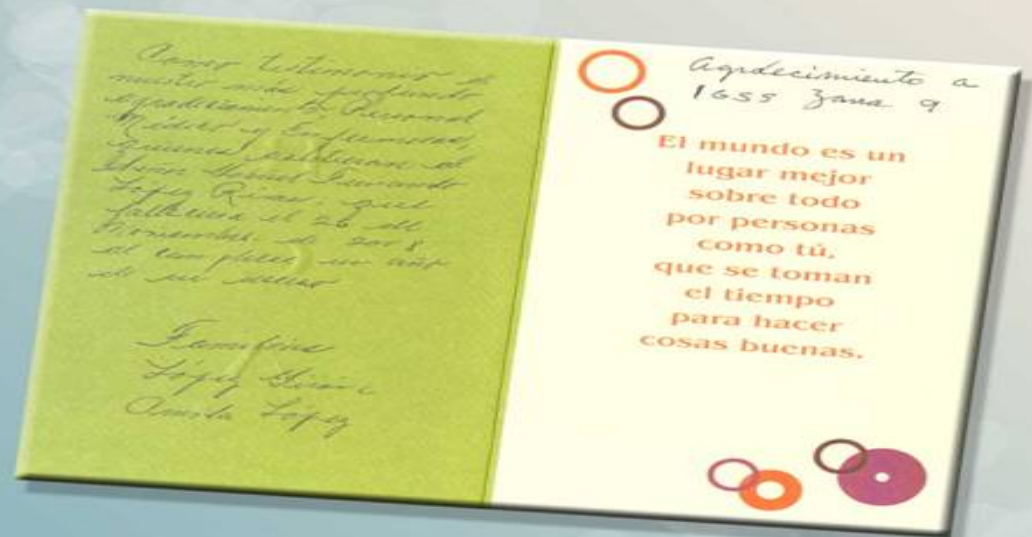 Como testimonio de
nuestro más profundo
agradecimiento Personal
Médico y Enfermeras,
quienes
Señor Manuel Fernando
López que
el 26 de
Noviembre de 2008,
al cumplirse un año
de su
Familia
López Girón
López
Agradecimiento a
IGSS Zona 9
El mundo es un
lugar mejor
sobre todo
por personas
como tú,
que se toman
el tiempo
para hacer
cosas buenas.